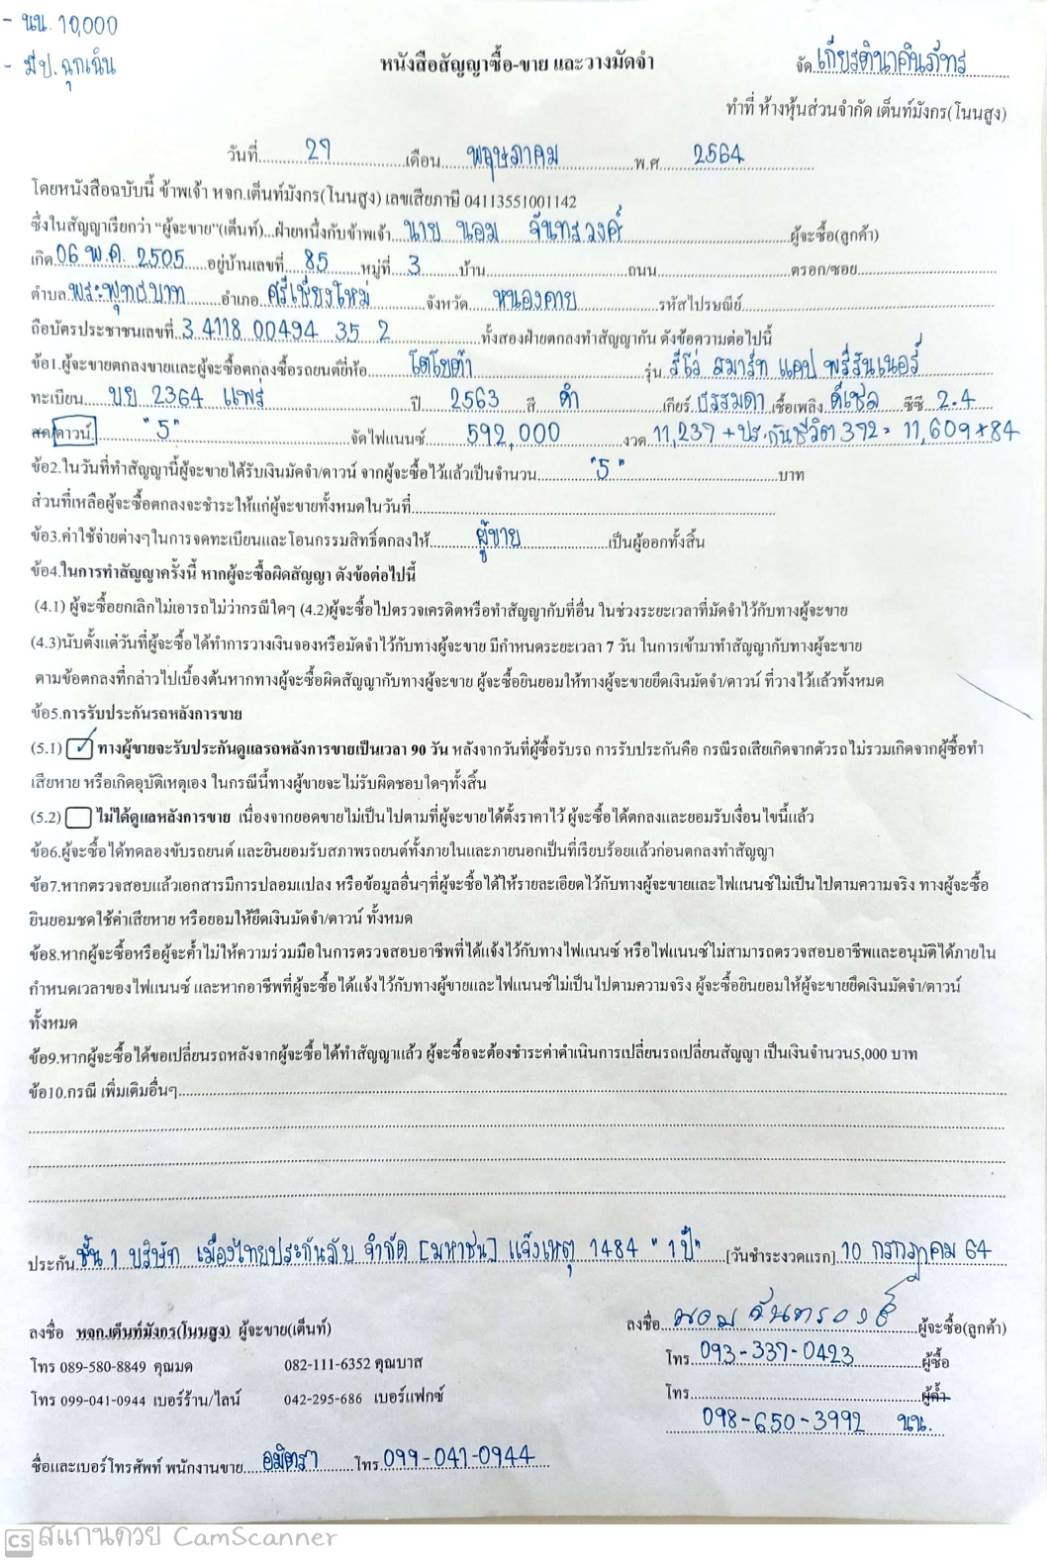 - นน. 10,000
- มีป.ฉุกเฉิน
หนังสือสัญญาซื้อ-ขาย และวางมัดจำ
จัด เกียรตินาคินภัทร
ทำที่ ห้างหุ้นส่วนจำกัด เต็นท์มังกร(โนนสูง)
วันที่ 29 เดือน พฤษภาคม พ.ศ 2564
โดยหนังสือฉบับนี้ ข้าพเจ้า หจก.เต็นท์มังกร(โนนสูง) เลขเสียภาษี 04113551001142
ซึ่งในสัญญาเรียกว่า "ผู้จะขาย"(เต็นท์)...ฝ่ายหนึ่งกับข้าพเจ้า นาย นอม จันทรวงศ์ ผู้จะซื้อ(ลูกค้า)
เกิด 06 พ.ค. 2505 อยู่บ้านเลขที่ 85 หมู่ที่ 3 บ้าน ถนน ตรอก/ซอย
ตำบล พระพุทธบาท อำเภอ ศรีเชียงใหม่ จังหวัด หนองคาย รหัสไปรษณีย์
ถือบัตรประชาชนเลขที่ 3 4118 00494 35 2 ทั้งสองฝ่ายตกลงทำสัญญากัน ดังข้อความต่อไปนี้
ข้อ1.ผู้จะขายตกลงขายและผู้จะซื้อตกลงซื้อรถยนต์ยี่ห้อ โตโยต้า รุ่น รีโว่ สมาร์ท แคป พรีรันเนอร์
ทะเบียน บย 2364 แพร่ ปี 2563 สี ดำ เกียร์ ธรรมดา เชื้อเพลิง ดีเซล ซีซี 2.4
สด/ดาวน์ "5" จัดไฟแนนซ์ 592,000 งวด 11,237 + ประกันชีวิต 372 = 11,609 * 84
ข้อ2.ในวันที่ทำสัญญานี้ผู้จะขายได้รับเงินมัดจำ/ดาวน์ จากผู้จะซื้อไว้แล้วเป็นจำนวน "5" บาท
ส่วนที่เหลือผู้จะซื้อตกลงจะชำระให้แก่ผู้จะขายทั้งหมดในวันที่
ข้อ3.ค่าใช้จ่ายต่างๆในการจดทะเบียนและโอนกรรมสิทธิ์ตกลงให้ ผู้ขาย เป็นผู้ออกทั้งสิ้น
ข้อ4.ในการทำสัญญาครั้งนี้ หากผู้จะซื้อผิดสัญญา ดังข้อต่อไปนี้
(4.1) ผู้จะซื้อยกเลิกไม่เอารถไม่ว่ากรณีใดๆ (4.2)ผู้จะซื้อไปตรวจเครดิตหรือทำสัญญากับที่อื่น ในช่วงระยะเวลาที่มัดจำไว้กับทางผู้จะขาย
(4.3)นับตั้งแต่วันที่ผู้จะซื้อได้ทำการวางเงินจองหรือมัดจำไว้กับทางผู้จะขาย มีกำหนดระยะเวลา 7 วัน ในการเข้ามาทำสัญญากับทางผู้จะขาย
ตามข้อตกลงที่กล่าวไปเบื้องต้นหากทางผู้จะซื้อผิดสัญญากับทางผู้จะขาย ผู้จะซื้อยินยอมให้ทางผู้จะขายยึดเงินมัดจำ/ดาวน์ ที่วางไว้แล้วทั้งหมด
ข้อ5.การรับประกันรถหลังการขาย
(5.1) ✓ ทางผู้ขายจะรับประกันดูแลรถหลังการขายเป็นเวลา 90 วัน หลังจากวันที่ผู้ซื้อรับรถ การรับประกันคือ กรณีรถเสียเกิดจากตัวรถไม่รวมเกิดจากผู้ซื้อทำ
เสียหาย หรือเกิดอุบัติเหตุเอง ในกรณีนี้ทางผู้ขายจะไม่รับผิดชอบใดๆทั้งสิ้น
(5.2) ไม่ได้ดูแลหลังการขาย เนื่องจากยอดขายไม่เป็นไปตามที่ผู้จะขายได้ตั้งราคาไว้ ผู้จะซื้อได้ตกลงและยอมรับเงื่อนไขนี้แล้ว
ข้อ6.ผู้จะซื้อได้ทดลองขับรถยนต์ และยินยอมรับสภาพรถยนต์ทั้งภายในและภายนอกเป็นที่เรียบร้อยแล้วก่อนตกลงทำสัญญา
ข้อ7.หากตรวจสอบแล้วเอกสารมีการปลอมแปลง หรือข้อมูลอื่นๆที่ผู้จะซื้อได้ให้รายละเอียดไว้กับทางผู้จะขายและไฟแนนซ์ไม่เป็นไปตามความจริง ทางผู้จะซื้อ
ยินยอมชดใช้ค่าเสียหาย หรือยอมให้ยึดเงินมัดจำ/ดาวน์ ทั้งหมด
ข้อ8.หากผู้จะซื้อหรือผู้จะค้ำไม่ให้ความร่วมมือในการตรวจสอบอาชีพที่ได้แจ้งไว้กับทางไฟแนนซ์ หรือไฟแนนซ์ไม่สามารถตรวจสอบอาชีพและอนุมัติได้ภายใน
กำหนดเวลาของไฟแนนซ์ และหากอาชีพที่ผู้จะซื้อได้แจ้งไว้กับทางผู้ขายและไฟแนนซ์ไม่เป็นไปตามความจริง ผู้จะซื้อยินยอมให้ผู้จะขายยึดเงินมัดจำ/ดาวน์
ทั้งหมด
ข้อ9.หากผู้จะซื้อได้ขอเปลี่ยนรถหลังจากผู้จะซื้อได้ทำสัญญาแล้ว ผู้จะซื้อจะต้องชำระค่าดำเนินการเปลี่ยนรถเปลี่ยนสัญญา เป็นเงินจำนวน5,000 บาท
ข้อ10.กรณี เพิ่มเติมอื่นๆ
ประกัน ชั้น 1 บริษัท เมืองไทยประกันภัย จำกัด [มหาชน] แจ้งเหตุ 1484 "1 ปี" [วันชำระงวดแรก] 10 กรกฎาคม 64
ลงชื่อ หจก.เต็นท์มังกร(โนนสูง) ผู้จะขาย(เต็นท์) ลงชื่อ นอม จันทรวงศ์ ผู้จะซื้อ(ลูกค้า)
โทร 089-580-8849 คุณมด 082-111-6352 คุณบาส โทร 093-337-0423 ผู้ซื้อ
โทร 099-041-0944 เบอร์ร้าน/ไลน์ 042-295-686 เบอร์แฟกซ์ โทร ผู้ค้ำ
098-650-3992 นน.
ชื่อและเบอร์โทรศัพท์ พนักงานขาย อมิตรา โทร 099-041-0944
CS สแกนด้วย CamScanner